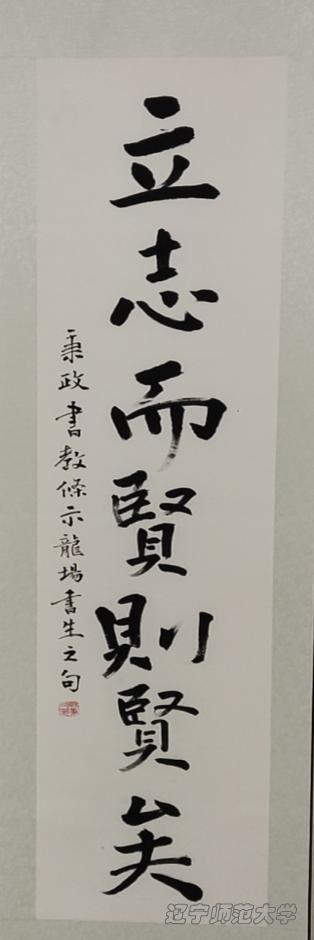 立志而賢則賢矣
秉政書教條示龍場書生之句
辽宁师范大学